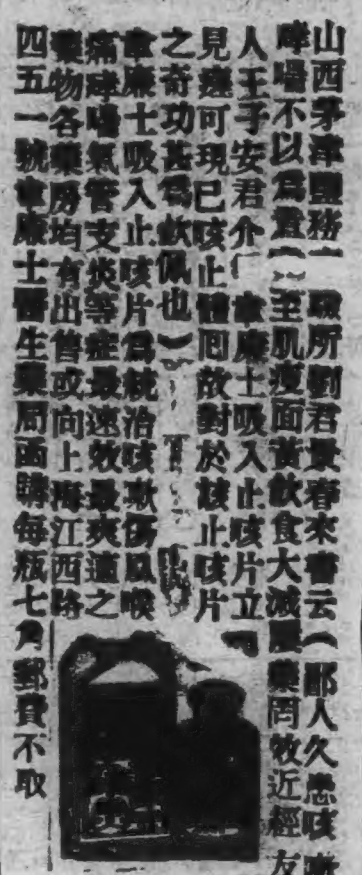 山西茅津鹽務一職所劉君景春來書云（鄙人久患咳嗽
哮喘不以為意（）至肌瘦面黃飲食大減服藥罔效近經友
人王子安君介韋廉士吸入止咳片立
見速可現已咳止體回故對於該止咳片
之奇功甚為欽佩也）
韋廉士吸入止咳片為統治咳嗽傷風喉
痛哮喘氣管支炎等症最速效最爽適之
藥物各藥房均有出售或向上海江西路
四五一號韋廉士醫生藥局函購每瓶七角郵費不取